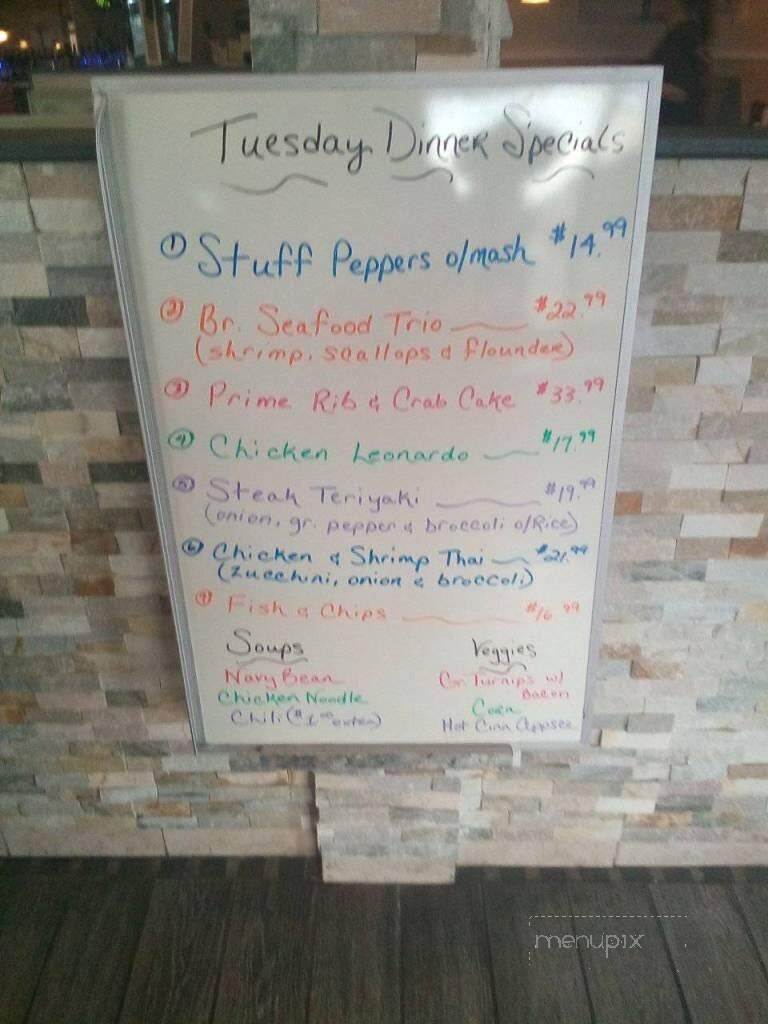 Tuesday Dinner Specials
① Stuff Peppers o/mash $14.99
② Br. Seafood Trio $22.99
(shrimp, scallops & flounder)
③ Prime Rib & Crab Cake $33.99
④ Chicken Leonardo $17.99
⑤ Steak Teriyaki $19.99
(onion, gr. pepper & broccoli o/Rice)
⑥ Chicken & Shrimp Thai $21.99
(zucchini, onion & broccoli)
⑦ Fish & Chips $16.99
Soups
Navy Bean
Chicken Noodle
Chili ($1.00 extra)
Veggies
Gr. Turnips w/
Bacon
Corn
Hot Cinn Appsce
menupix